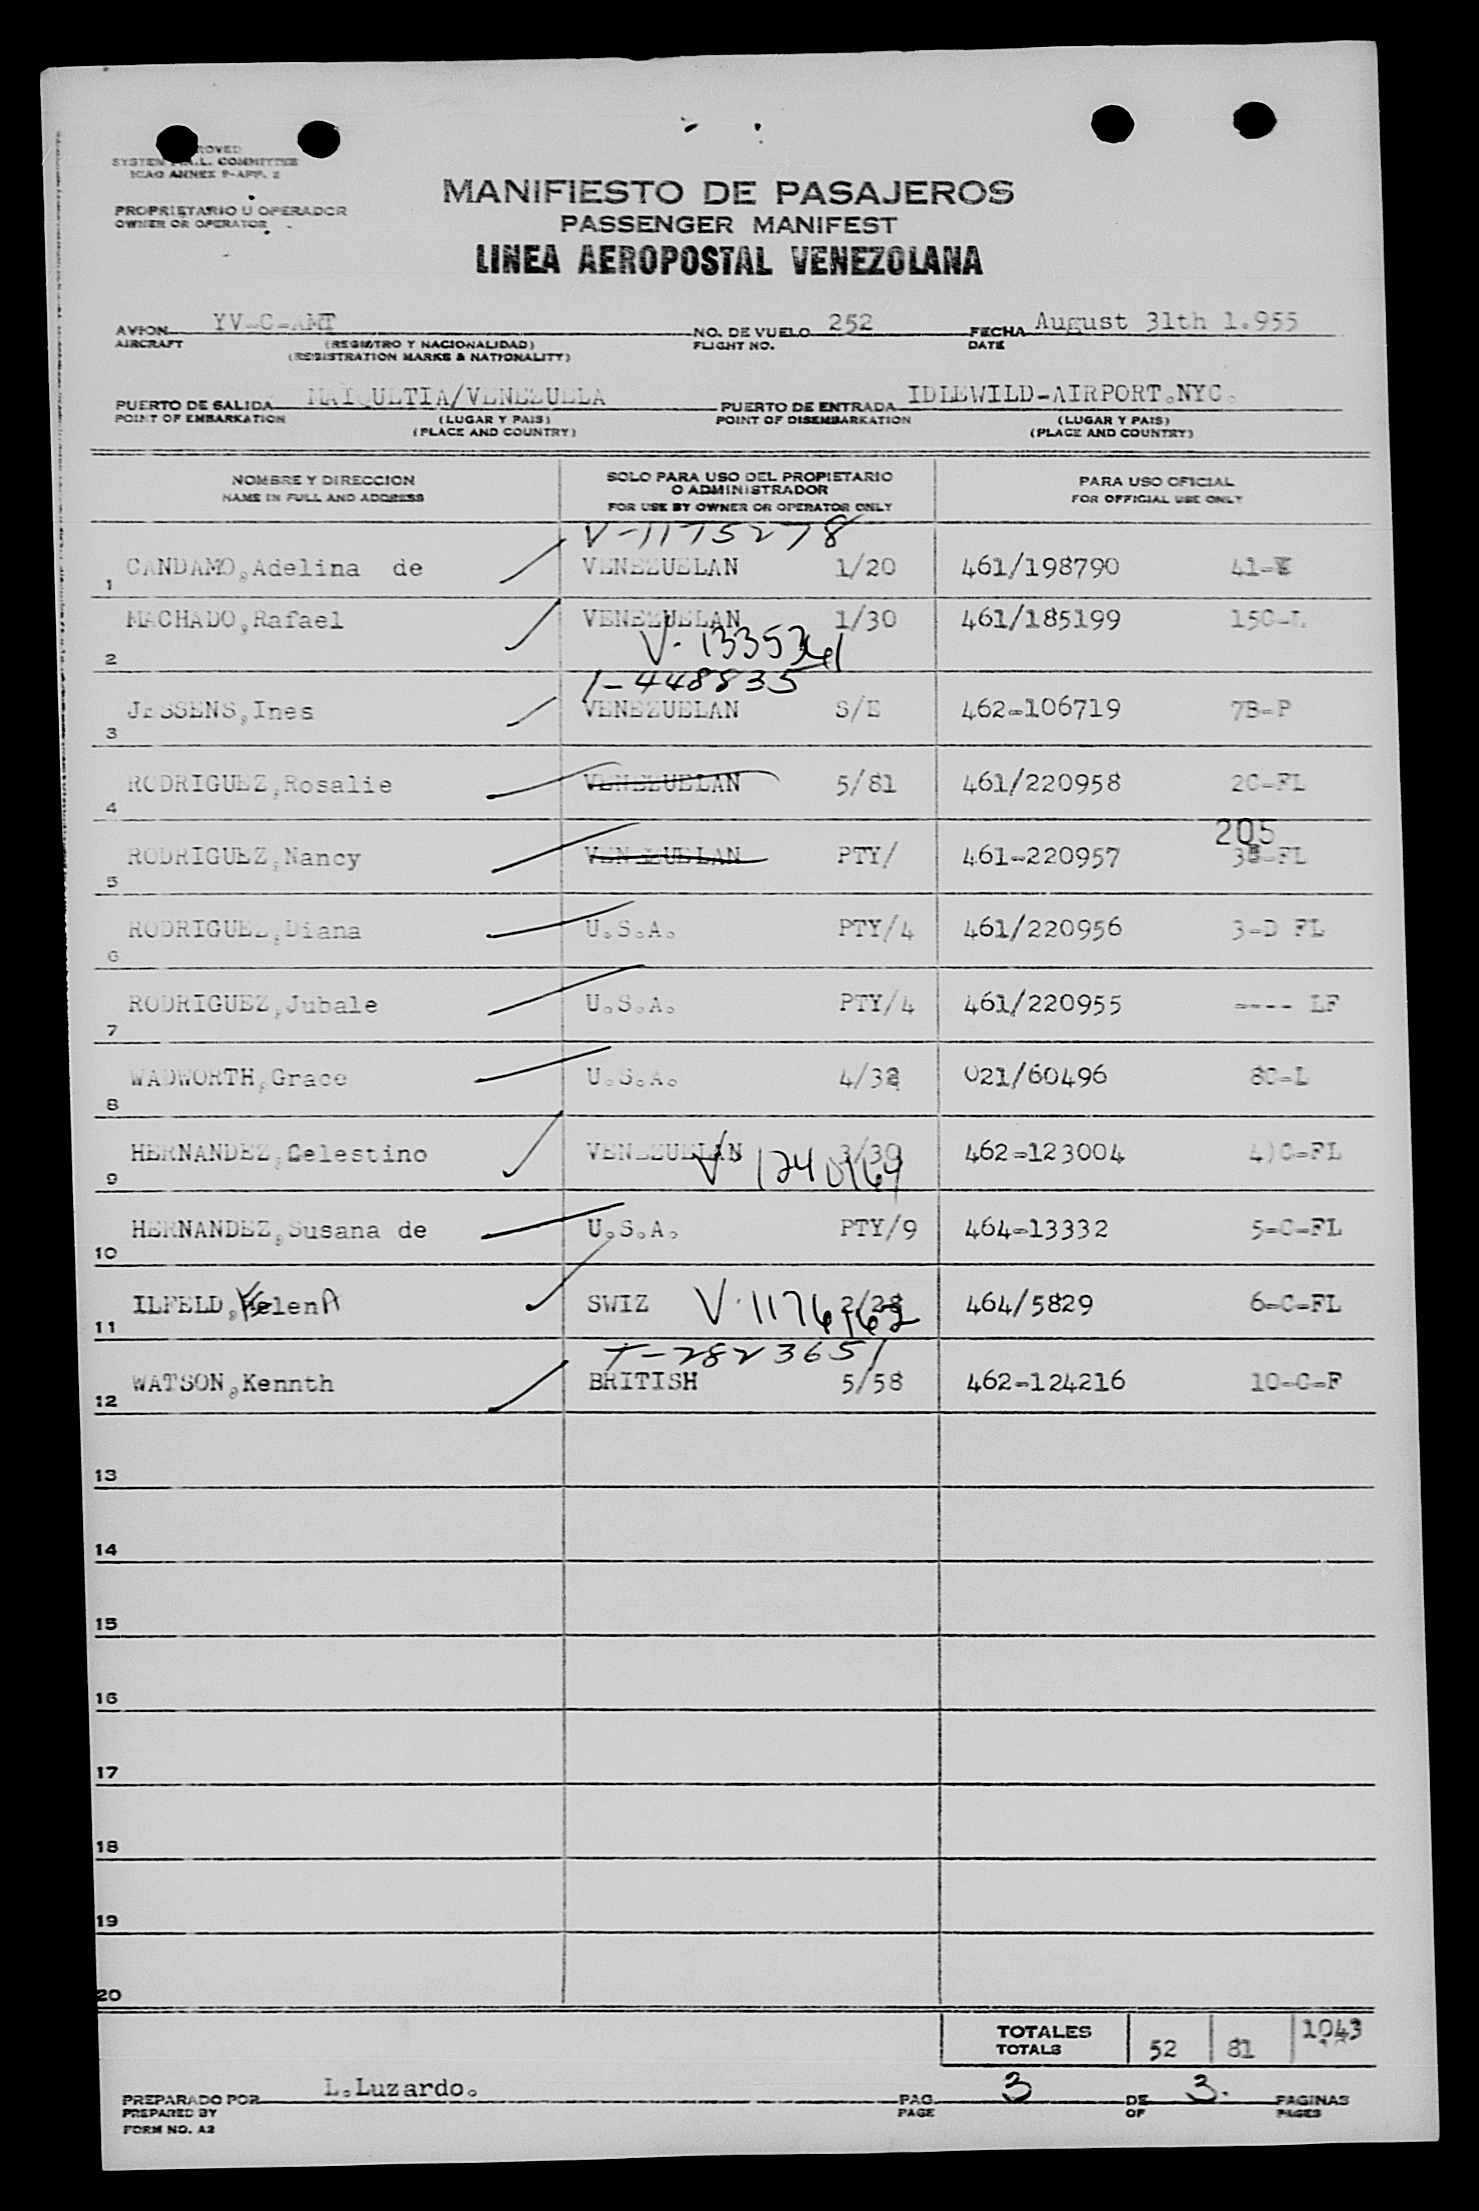 SYSTEM F.A.L. COMMITTEE
ICAO ANNEX 9-APP. 2
PROPRIETARIO U OPERADOR
OWNER OR OPERATOR
MANIFIESTO DE PASAJEROS
PASSENGER MANIFEST
LINEA AEROPOSTAL VENEZOLANA
AVION YV-C-AMT NO. DE VUELO 252 FECHA August 31th 1.955
AIRCRAFT (REGISTRO Y NACIONALIDAD) FLIGHT NO. DATE
(REGISTRATION MARKS & NATIONALITY)
PUERTO DE SALIDA MAIQUETIA/VENEZUELA PUERTO DE ENTRADA IDLEWILD-AIRPORT.NYC.
POINT OF EMBARKATION (LUGAR Y PAIS) POINT OF DISEMBARKATION (LUGAR Y PAIS)
(PLACE AND COUNTRY) (PLACE AND COUNTRY)
NOMBRE Y DIRECCION SOLO PARA USO DEL PROPIETARIO PARA USO OFICIAL
NAME IN FULL AND ADDRESS O ADMINISTRADOR FOR OFFICIAL USE ONLY
FOR USE BY OWNER OR OPERATOR ONLY
V-1175278
1 CANDAMO,Adelina de VENEZUELAN 1/20 461/198790
2 MACHADO,Rafael VENEZUELAN 1/30 461/185199 15C-L
1-448835
3 JESSENS,Ines VENEZUELAN S/E 462-106719 7B-P
4 RODRIGUEZ,Rosalie VENEZUELAN 5/81 461/220958 2C-FL
205
5 RODRIGUEZ,Nancy VENEZUELAN PTY/ 461-220957
6 RODRIGUEZ,Diana U.S.A. PTY/4 461/220956 3-D FL
7 RODRIGUEZ,Jubale U.S.A. PTY/4 461/220955 ---- LF
8 WADWORTH,Grace U.S.A. 021/60496 8C-L
9 HERNANDEZ,Celestino VENEZUELAN 3/30 462-123004 4)C-FL
10 HERNANDEZ,Susana de U.S.A. PTY/9 464-13332 5-C-FL
11 ILFELD,HelenA SWIZ 2/28 464/5829 6-C-FL
T-2823651
12 WATSON,Kennth BRITISH 5/58 462-124216 10-C-F
13
14
15
16
17
18
19
20
TOTALES
TOTALS 52 81 1043
PREPARADO POR L.Luzardo. PAG. 3 DE 3. PAGINAS
PREPARED BY PAGE OF PAGES
FORM NO. A2